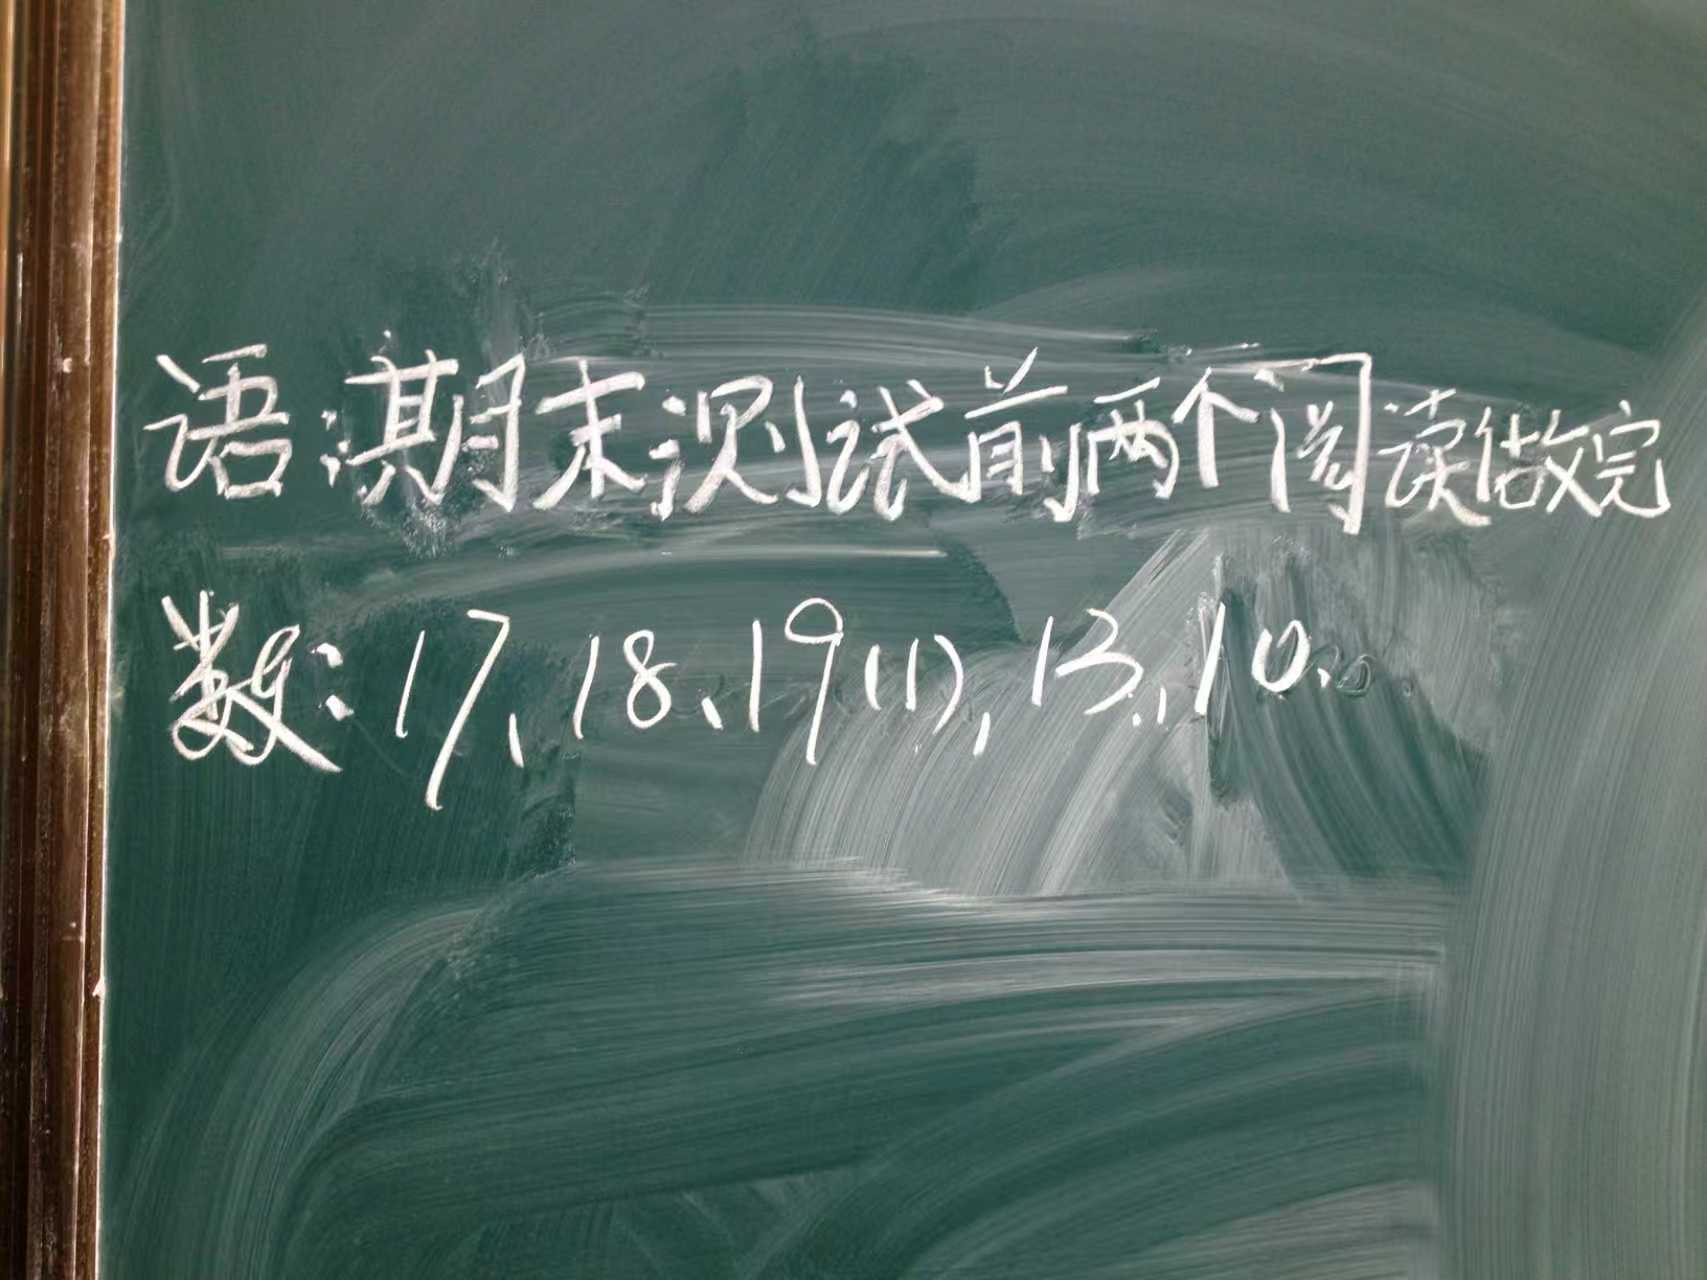 语:期末测试前两个阅读做完
数:17、18、19(1),13、10.